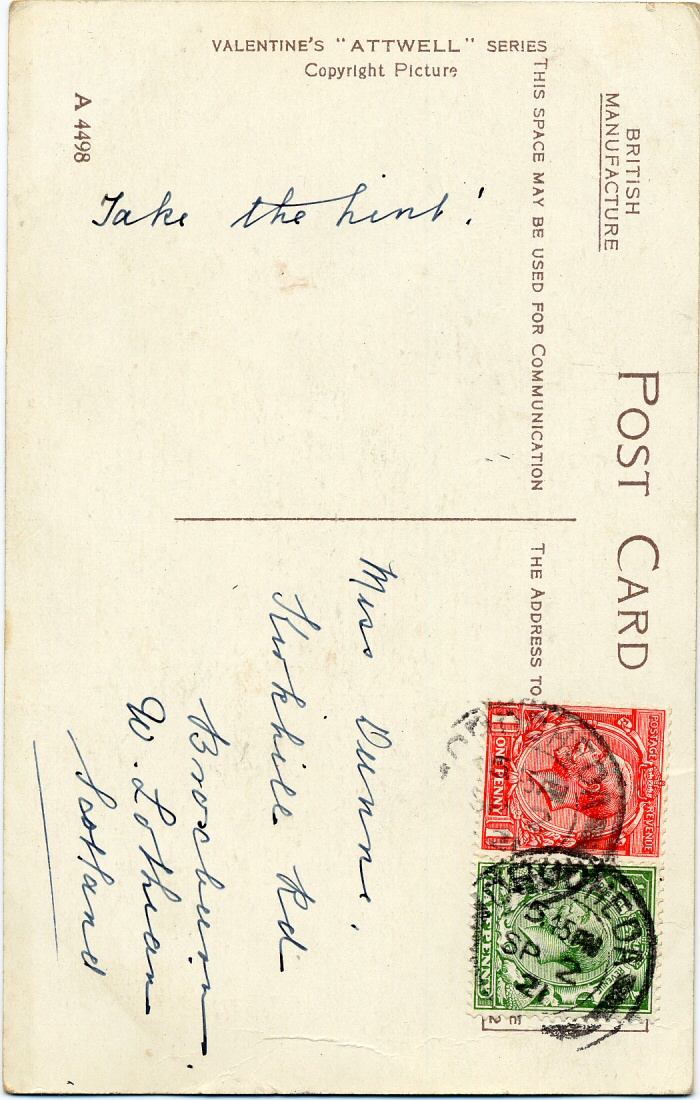 VALENTINE'S "ATTWELL" SERIES
Copyright Picture
A 4498
BRITISH
MANUFACTURE
POST CARD
THIS SPACE MAY BE USED FOR COMMUNICATION
THE ADDRESS TO
Take the hint!
Miss Dunn,
Kirkhill Rd
Broxburn
W. Lothian
Scotland
POSTAGE
REVENUE
ONE PENNY
5 15 PM
SP 2
21
REVENUE
PENNY